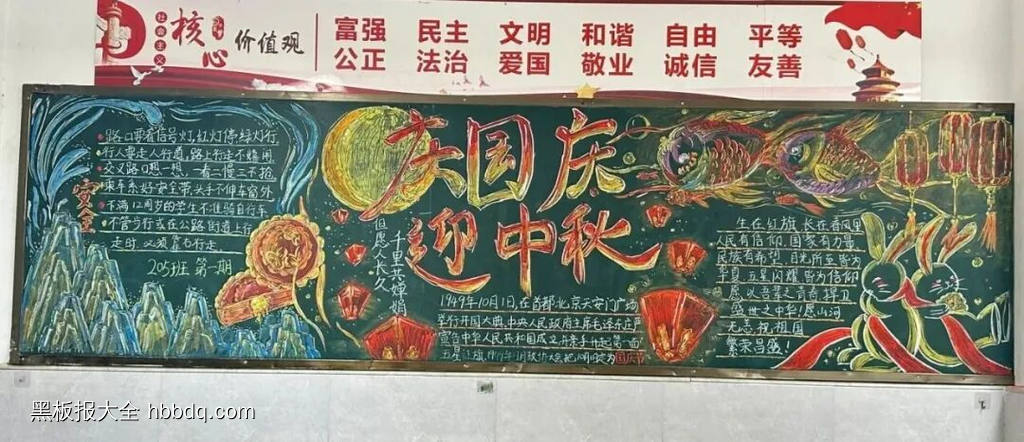 社会主义
核心价值观
富强 民主 文明 和谐 自由 平等
公正 法治 爱国 敬业 诚信 友善
路口要看信号灯,红灯停绿灯行
行人要走人行道,路上行走不嬉闹
交叉路口想一想,一看二慢三不抢
乘车系好安全带头手不伸车窗外
不满12周岁的学生不准骑自行车
不管步行或在公路街道上行
走时 必须靠右行走
安全
205班 第一期
庆国庆
迎中秋
但愿人长久
千里共婵娟
1949年10月1日,在首都北京天安门广场
举行开国大典,中央人民政府主席毛泽东庄严
宣告中华人民共和国成立,并亲手升起第一面
五星红旗,
国庆节
生在红旗 长在春风里
人民有信仰 国家有力量
民族有希望 目光所至皆为
华夏 五星闪耀 皆为信仰
愿以吾辈之青春 捍卫
盛世之中华!愿山河
无恙 祝祖国
繁荣昌盛!
黑板报大全 hbbdq.com